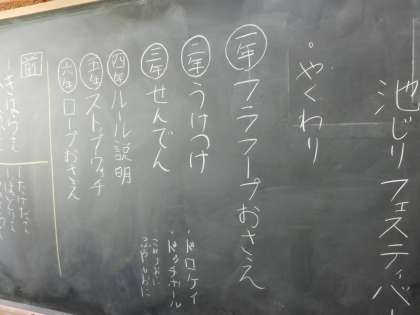 池じりフェスティバ
・やくわり
一年 フラフープおさえ
二年 うけつけ
・ドロケイ
・ドッチボール
三年 せんでん
四年 ルール説明
五年 ストップウォッチ
六年 ロープおさえ
前